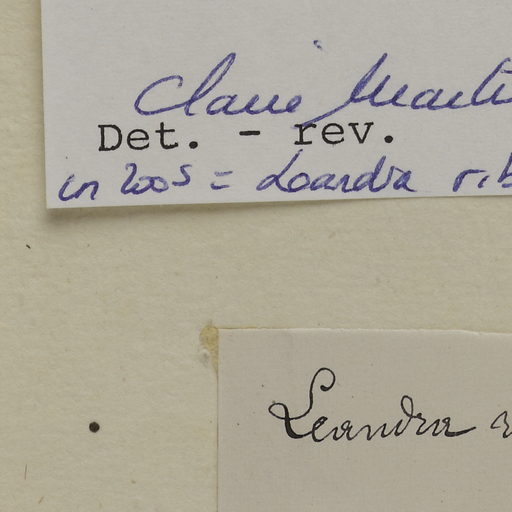 Claire Marti
Det. - rev.
in 2005 = Leandra rib
Leandra